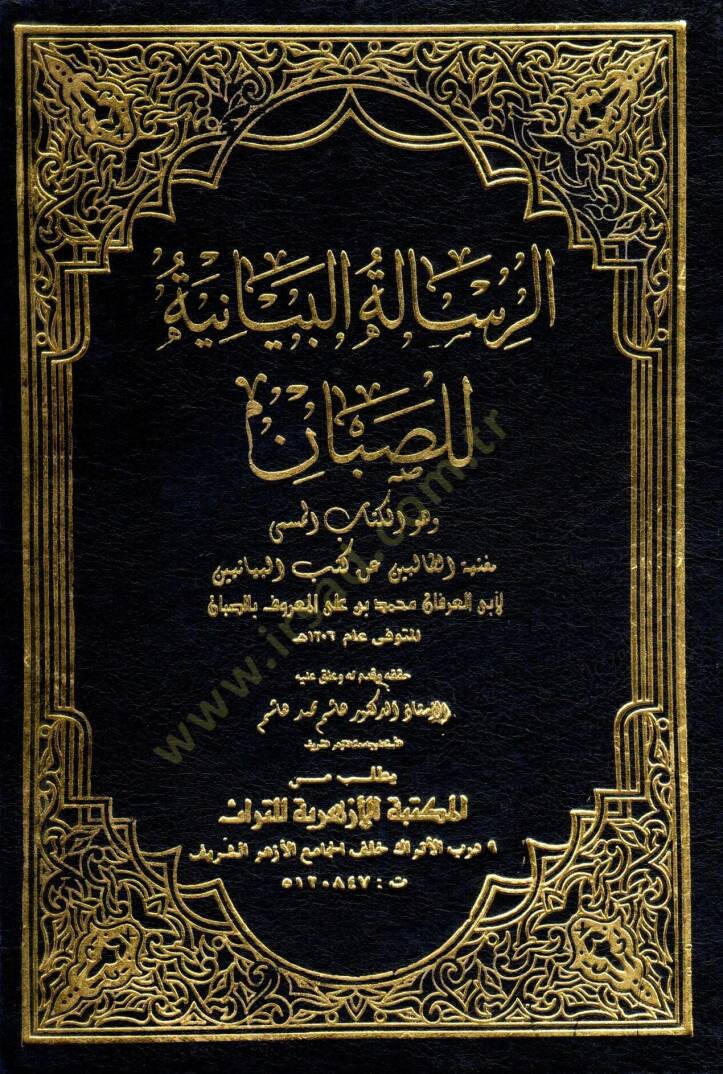 الرسالة البيانية
للصبان
وهو الكتاب المسمى
مغنية الطالبين عن كتب البيانيين
لأبى العرفان محمد بن على المعروف بالصبان
المتوفى عام ١٢٠٦هـ
حققه وقدم له وعلق عليه
الأستاذ الدكتور هاشم محمد هاشم
يطلب من
المكتبة الأزهرية للتراث
٩ درب الأتراك خلف الجامع الأزهر الشريف
ت : ٥١٢٠٨٤٧
www.irsad.com.tr